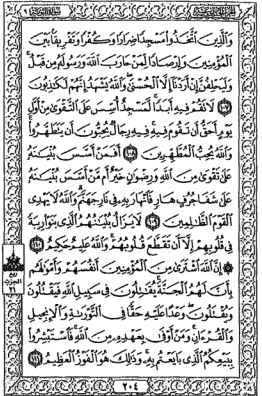 وَٱلَّذِينَ ٱتَّخَذُواْ مَسۡجِدٗا ضِرَارٗا وَكُفۡرٗا وَتَفۡرِيقَۢا بَيۡنَ
ٱلۡمُؤۡمِنِينَ وَإِرۡصَادٗا لِّمَنۡ حَارَبَ ٱللَّهَ وَرَسُولَهُۥ مِن قَبۡلُۚ
وَلَيَحۡلِفُنَّ إِنۡ أَرَدۡنَآ إِلَّا ٱلۡحُسۡنَىٰۖ وَٱللَّهُ يَشۡهَدُ إِنَّهُمۡ لَكَٰذِبُونَ
١٠٧ لَا تَقُمۡ فِيهِ أَبَدٗاۚ لَّمَسۡجِدٌ أُسِّسَ عَلَى ٱلتَّقۡوَىٰ مِنۡ أَوَّلِ
يَوۡمٍ أَحَقُّ أَن تَقُومَ فِيهِۚ فِيهِ رِجَالٞ يُحِبُّونَ أَن يَتَطَهَّرُواْۚ
وَٱللَّهُ يُحِبُّ ٱلۡمُطَّهِّرِينَ ١٠٨ أَفَمَنۡ أَسَّسَ بُنۡيَٰنَهُۥ
عَلَىٰ تَقۡوَىٰ مِنَ ٱللَّهِ وَرِضۡوَٰنٍ خَيۡرٌ أَم مَّنۡ أَسَّسَ بُنۡيَٰنَهُۥ
عَلَىٰ شَفَا جُرُفٍ هَارٖ فَٱنۡهَارَ بِهِۦ فِي نَارِ جَهَنَّمَۗ وَٱللَّهُ لَا يَهۡدِي
ٱلۡقَوۡمَ ٱلظَّٰلِمِينَ ١٠٩ لَا يَزَالُ بُنۡيَٰنُهُمُ ٱلَّذِي بَنَوۡاْ رِيبَةٗ
فِي قُلُوبِهِمۡ إِلَّآ أَن تَقَطَّعَ قُلُوبُهُمۡۗ وَٱللَّهُ عَلِيمٌ حَكِيمٌ ١١٠
إِنَّ ٱللَّهَ ٱشۡتَرَىٰ مِنَ ٱلۡمُؤۡمِنِينَ أَنفُسَهُمۡ وَأَمۡوَٰلَهُم
بِأَنَّ لَهُمُ ٱلۡجَنَّةَۚ يُقَٰتِلُونَ فِي سَبِيلِ ٱللَّهِ فَيَقۡتُلُونَ
وَيُقۡتَلُونَۖ وَعۡدًا عَلَيۡهِ حَقّٗا فِي ٱلتَّوۡرَىٰةِ وَٱلۡإِنجِيلِ
وَٱلۡقُرۡءَانِۚ وَمَنۡ أَوۡفَىٰ بِعَهۡدِهِۦ مِنَ ٱللَّهِۚ فَٱسۡتَبۡشِرُواْ
بِبَيۡعِكُمُ ٱلَّذِي بَايَعۡتُم بِهِۦۚ وَذَٰلِكَ هُوَ ٱلۡفَوۡزُ ٱلۡعَظِيمُ ١١١
ربع
الحزب
٢١
٢٠٤